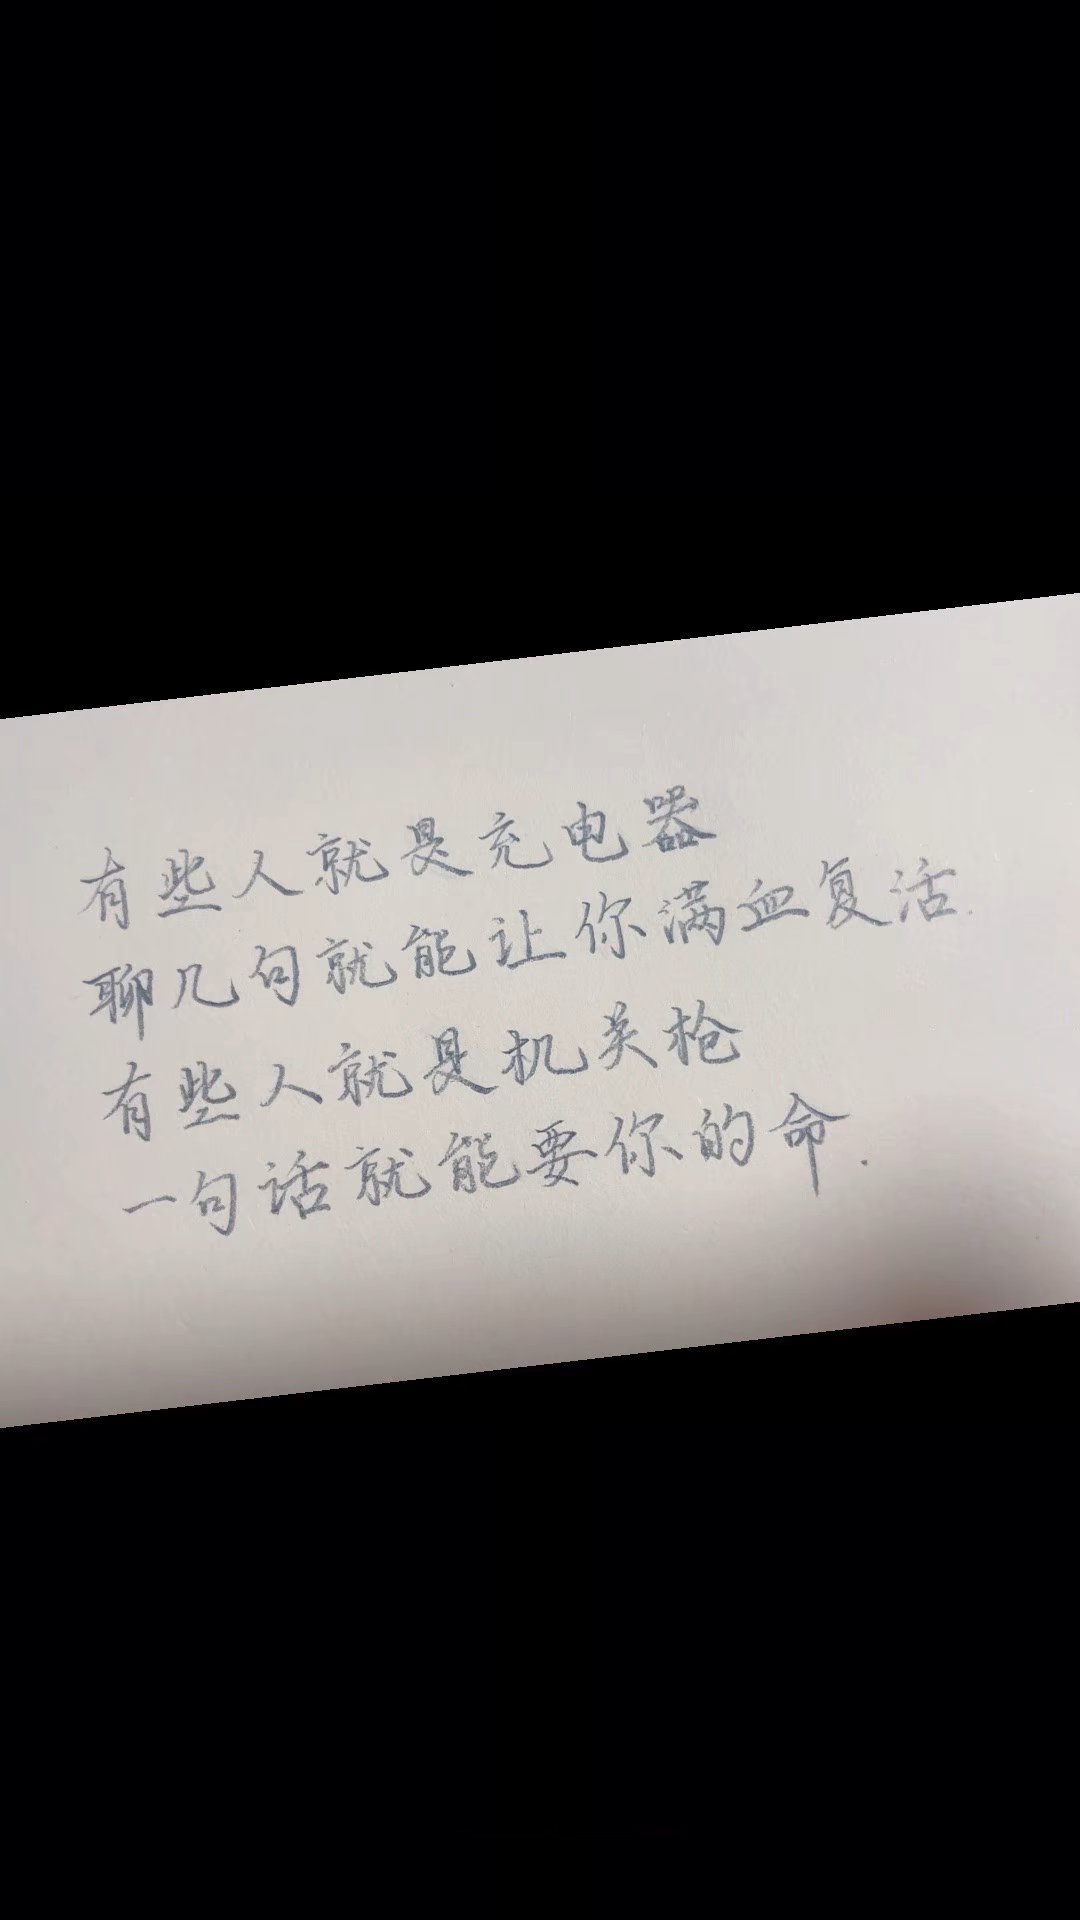 有些人就是充电器
聊几句就能让你满血复活.
有些人就是机关枪
一句话就能要你的命.